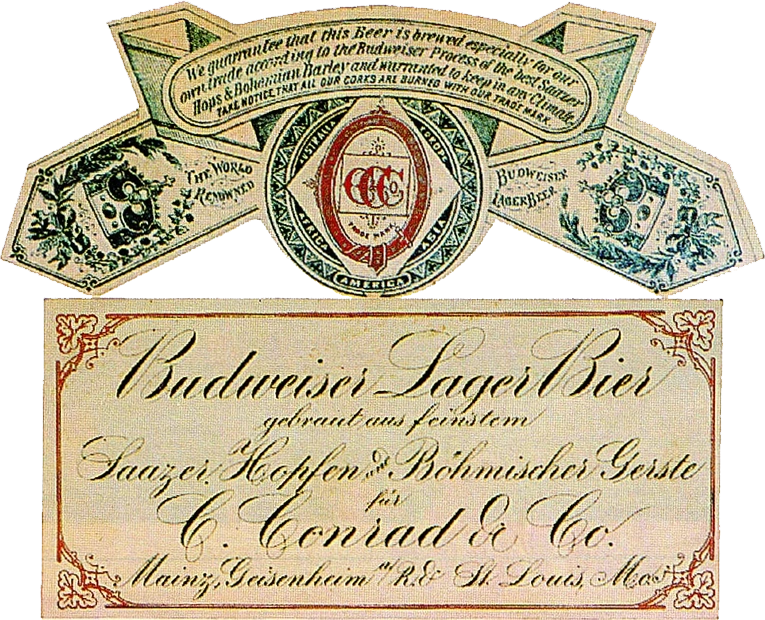 We guarrantee that this Beer is brewed especially for our
own trade according to the Budweiser Process of the best Saazer
Hops & Bohemian Barley and warranted to keep in any Climate.
TAKE NOTICE THAT ALL OUR CORKS ARE BURNED WITH OUR TRADE MARK
THE WORLD
RENOWNED
BUDWEISER
LAGER BEER
AUSTRALIA
EUROPE
CCCo.
TRADE MARK
AFRICA
ASIA
AMERICA
Budweiser Lager Bier
gebraut aus feinstem
Saazer Hopfen und Böhmischer Gerste
für
C. Conrad & Co.
Mainz, Geisenheim a/R. & St. Louis, Mo.